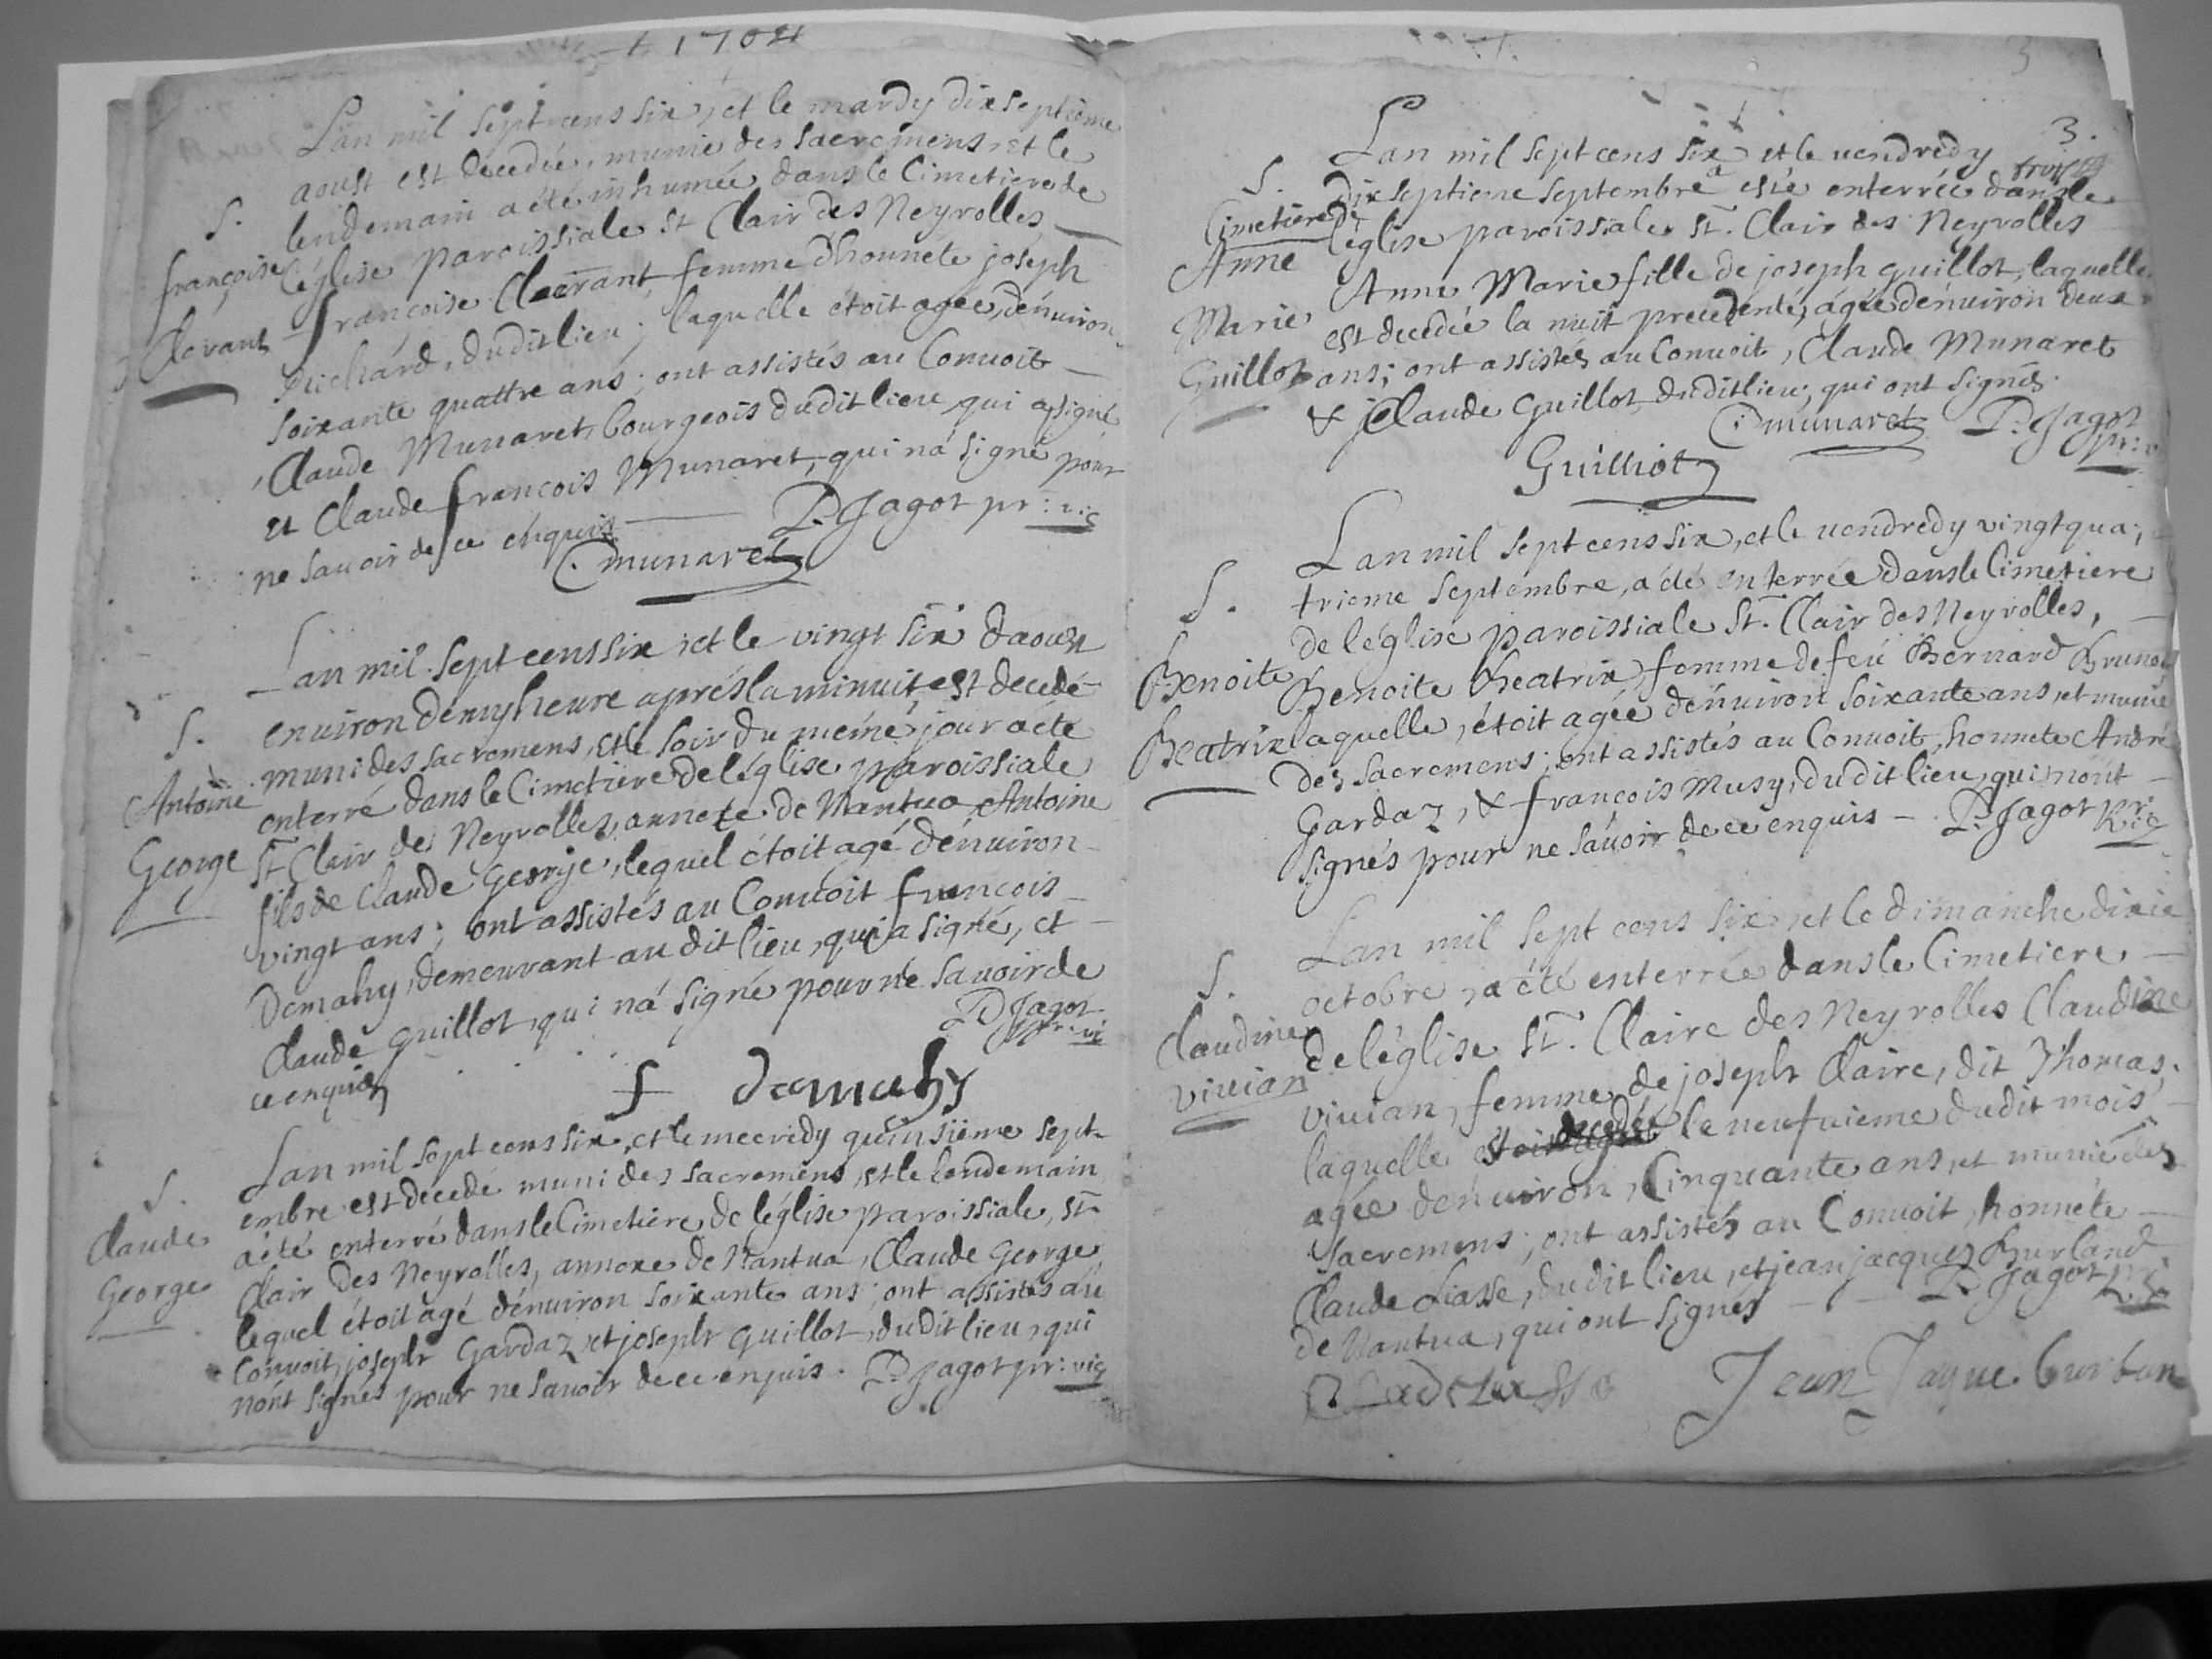 1704
Lan mil sept cens six, et le mardy dix septieme
aoust est decedée, munie des sacremens et le
S. lendemain a été inhumée dans le Cimetiere de
françoise léglise paroissiale St Clair des Neyrolles
Clerant françoise Clerant femme d'honnéte joseph
Richard, dudit lieu; laquelle étoit agée, dénuiron
soixante quattre ans; ont assistés au Conuoit
Claude Munaret, bourgeois dudit lieu qui a signé
et Claude françois Munaret, qui na signé pour
ne sauoir de ce enquis P. Jagot pr: vic
C munaret
Lan mil sept cens six et le vingt six daoust
S. enuiron demy heure aprés la minuit, est decedé
Antoine muni des sacremens, et le soir du méme jour a été
enterré dans le Cimetiere de léglise paroissiale
George St Clair des Neyrolles, annexe de Nantua Antoine
fils de Claude George, lequel étoit agé dénuiron
vingt ans; ont assistés au Conuoit françois
Demahy, demeurant au dit lieu, qui a signé, et
Claude Guillot, qui na signé pour ne sauoir de
ce enquis P Jagot pr: vi
f demahy
Lan mil sept cens six, et le mecredy quinsiéme sept
S. embre est décedé muni des sacremens, et le lendemain
Claude a été enterré dans le Cimetiere de léglise paroissiale, St
George Clair des Neyrolles, annexe de Nantua, Claude George
lequel étoit agé dénuiron soixante ans; ont assistés au
Conuoit, joseph Gardaz et joseph Guillot, dudit lieu, qui
nont signés pour ne sauoir de ce enquis. P Jagot pr: vic
3.
Lan mil sept cens six et le uendredy trois
S. dix septieme septembre a esté enterrée dans le
Cimetiere de léglise paroissiale St. Clair des Neyrolles
Anne Anne Marie fille de joseph guillot, laquelle
Marie est decedée la nuit precedente, agée dénuiron deux
Guillot ans; ont assistés au Conuoit, Claude Munaret
& Claude Guillot, dudit lieu; qui ont signés.
C munaret P: Jagot pr: v
Guilliot
Lan mil sept cens six, et le uendredy vingt qua;
S. trieme septembre, a été enterrée dans le Cimetiere
de léglise paroissiale St. Clair des Neyrolles,
Benoite Benoite Beatrix, femme de feu Bernard Brunet
Beatrix laquelle, étoit agée dénuiron soixante ans, et munie
des sacremens; ont assistés au Conuoit, honnete André
Gardaz, & françois Musy, dudit lieu, qui nont
signés pour ne sauoir de ce enquis - P. Jagot pr: vic
Lan mil sept cens six, et le dimanche dixie
S. octobre, a été enterrée dans le Cimetiere
Claudine de léglise St. Claire des Neyrolles Claudine
viuian viuian, femme de joseph Claire, dit Thomas,
laquelle decedée le neufuieme dudit mois
agée dénuiron, Cinquante ans, et munie des
sacremens; ont assistés au Conuoit, honnéte
Claude Liasse, dudit lieu, et jean jacques Burland
de Nantua, qui ont signés P. Jagot
Jean Jaque burlan